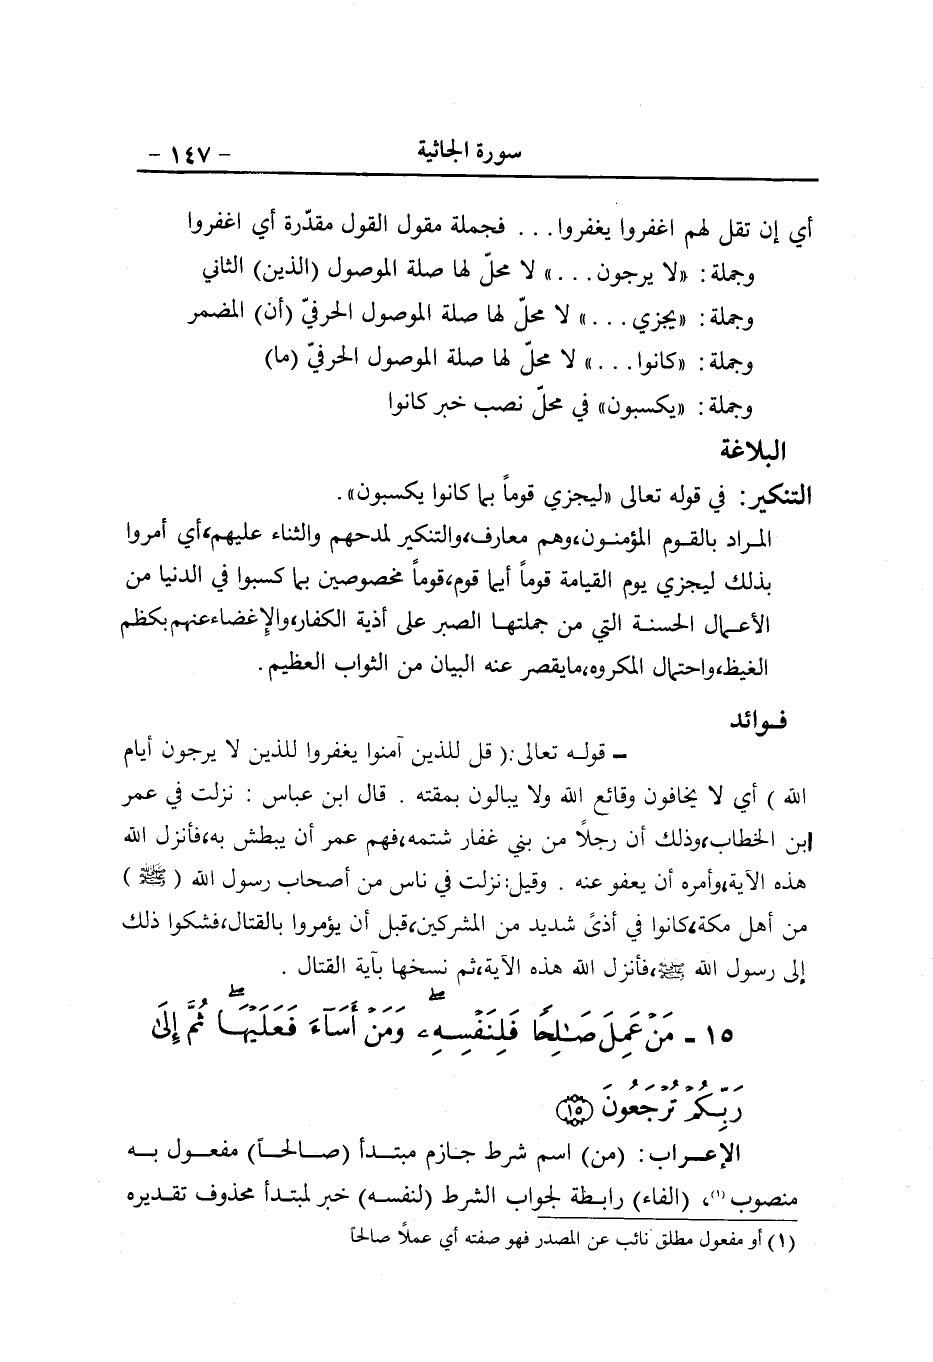 سورة الجاثية - ١٤٧ -
أي إن تقل لهم اغفروا يغفروا . . . فجملة مقول القول مقدّرة أي اغفروا
وجملة: «لا يرجون . . .» لا محلّ لها صلة الموصول (الذين) الثاني
وجملة: «يجزي . . .» لا محلّ لها صلة الموصول الحرفيّ (أن) المضمر
وجملة: «كانوا . . .» لا محلّ لها صلة الموصول الحرفيّ (ما)
وجملة: «يكسبون» في محلّ نصب خبر كانوا
البلاغة
التنكير: في قوله تعالى «ليجزي قوماً بما كانوا يكسبون».
المراد بالقوم المؤمنون،وهم معارف،والتنكير لمدحهم والثناء عليهم،أي أمروا
بذلك ليجزي يوم القيامة قوماً أيما قوم،قوماً مخصوصين بما كسبوا في الدنيا من
الأعمال الحسنة التي من جملتها الصبر على أذية الكفار،والإغضاءعنهم بكظم
الغيظ،واحتمال المكروه،مايقصر عنه البيان من الثواب العظيم .
فوائد
– قوله تعالى:( قل للذين آمنوا يغفروا للذين لا يرجون أيام
الله ) أي لا يخافون وقائع الله ولا يبالون بمقته . قال ابن عباس : نزلت في عمر
ابن الخطاب،وذلك أن رجلاً من بني غفار شتمه،فهم عمر أن يبطش به،فأنزل الله
هذه الآية،وأمره أن يعفو عنه . وقيل:نزلت في ناس من أصحاب رسول الله (ﷺ)
من أهل مكة،كانوا في أذىً شديد من المشركين،قبل أن يؤمروا بالقتال،فشكوا ذلك
إلى رسول الله ﷺ،فأنزل الله هذه الآية،ثم نسخها بآية القتال .
١٥ - مَنْ عَمِلَ صَـٰلِحًا فَلِنَفْسِهِۦۖ وَمَنْ أَسَآءَ فَعَلَيْهَاۖ ثُمَّ إِلَىٰ
رَبِّكُمْ تُرْجَعُونَ ﴿١٥﴾
الإعراب: (من) اسم شرط جازم مبتدأ (صالحاً) مفعول به
منصوب(١)، (الفاء) رابطة لجواب الشرط (لنفسه) خبر لمبتدأ محذوف تقديره
(١) أو مفعول مطلق نائب عن المصدر فهو صفته أي عملاً صالحاً